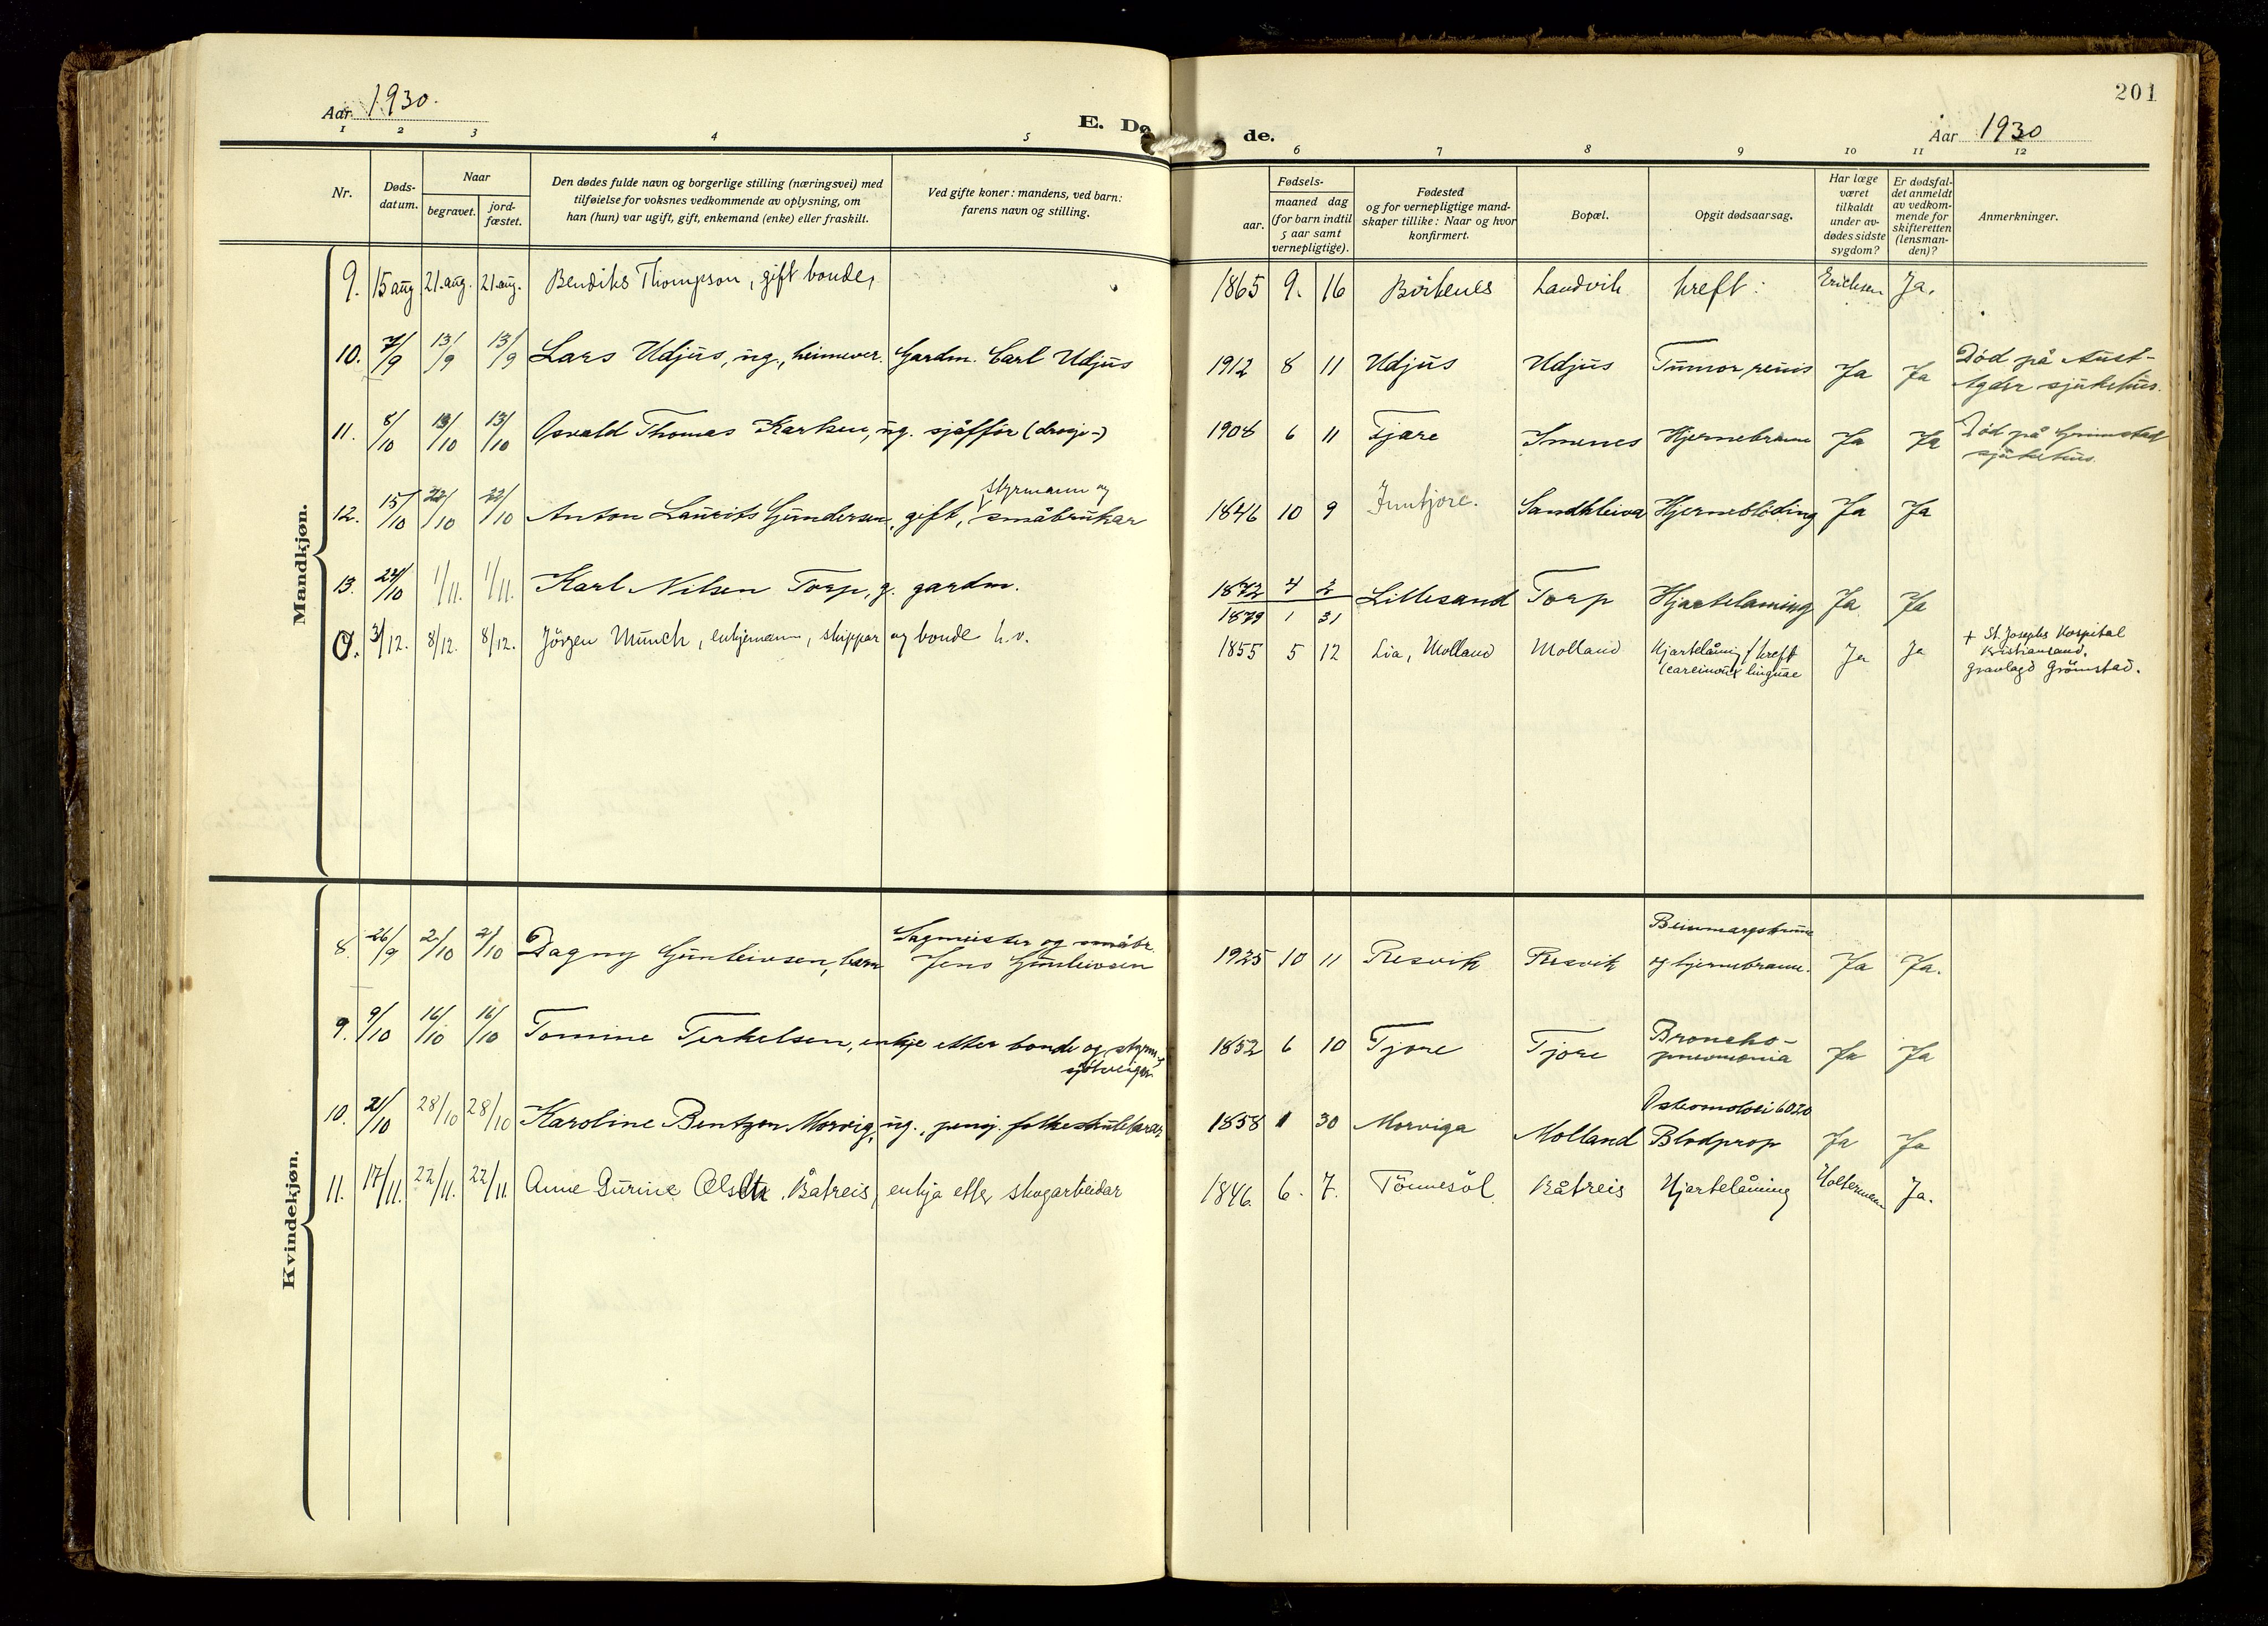 Aar 1930.
E. Dø de.
Aar 1930
201
1 2 3 4 5 6 7 8 9 10 11 12
Nr.
Døds-
datum.
Naar
begravet.
jord-
fæstet.
Den dødes fulde navn og borgerlige stilling (næringsvei) med
tilføielse for voksnes vedkommende av oplysning, om
han (hun) var ugift, gift, enkemand (enke) eller fraskilt.
Ved gifte koner: mandens, ved barn:
farens navn og stilling.
Fødsels-
aar.
maaned dag
(for barn indtil
5 aar samt
vernepligtige).
Fødested
og for vernepligtige mand-
skaper tillike: Naar og hvor
konfirmert.
Bopæl.
Opgit dødsaarsag.
Har læge
været
tilkaldt
under av-
dødes sidste
sygdom?
Er dødsfal-
det anmeldt
av vedkom-
mende for
skifteretten
(lensman-
den)?
Anmerkninger.
Mandkjøn.
9. 15 aug 21. aug. 21. aug. Bendiks Thompson, gift bonde, 1865 9. 16 Birkenes Landvik kreft: Erichsen Ja.
10. 7/9 13/9 13/9 Lars Udjus, ug., heimever. Gardm. Carl Udjus 1912 8 11 Udjus Udjus Tumor renis Ja Ja Död på Aust-
Agder sjukehus.
11. 8/10 13/10 13/10 Osvald Thomas Karlsen, ug. sjåffør (drosje-) 1908 6 11 Fjære Smenes Hjernebetenn Ja Ja Död på Grimstad
sjukehus.
styrmann og
12. 15/10 22/10 22/10 Anton Laurits Gundersen, gift, småbrukar 1846 10 9 Inntjore. Sandkleiva Hjerneblöding Ja Ja
13. 24/10 1/11. 1/11. Karl Nilsen Torp, g. gardm. 1872 4 2 Lillesand Torp Hjartelaming Ja Ja
1879 1 31
3/12. 8/12. 8/12. Jörgen Munch, enkjemann, skippar og bonde h.v. 1855 5 12 Lia, Molland Molland Hjartelåming / kreft Ja Ja + St. Josephs Hospital
(carcinoma linguae
Kristiansand.
Gravlagd Grömstad.
Kvindekjøn.
Sagmeister og småbr.
Beinmargsbrune
8. 26/9 2/10 2/10 Dagny Gunleivsen, barn Jens Gunleivsen 1925 10 11 Resvik Resvik og hjernebrann. Ja Ja.
9. 9/10 16/10 16/10 Tomine Terkelsen, enkje etter bonde og styrm. 1852 6 10 Tjore Tjore Broncho-
pneumonia Ja Ja
10. 21/10 28/10 28/10 Karoline Bentzen Morvig, ug., pensj. folkeskulelærar 1858 1 30 Morviga Molland Blodprop Ja Ja
11. 17/11. 22/11. 22/11 Anne Gurine Olsdtr. Båtreis, enkja etter skogarbeidar 1846. 6. 7. Tönnesöl Båtreis Hjartelåming Holtermann Ja.